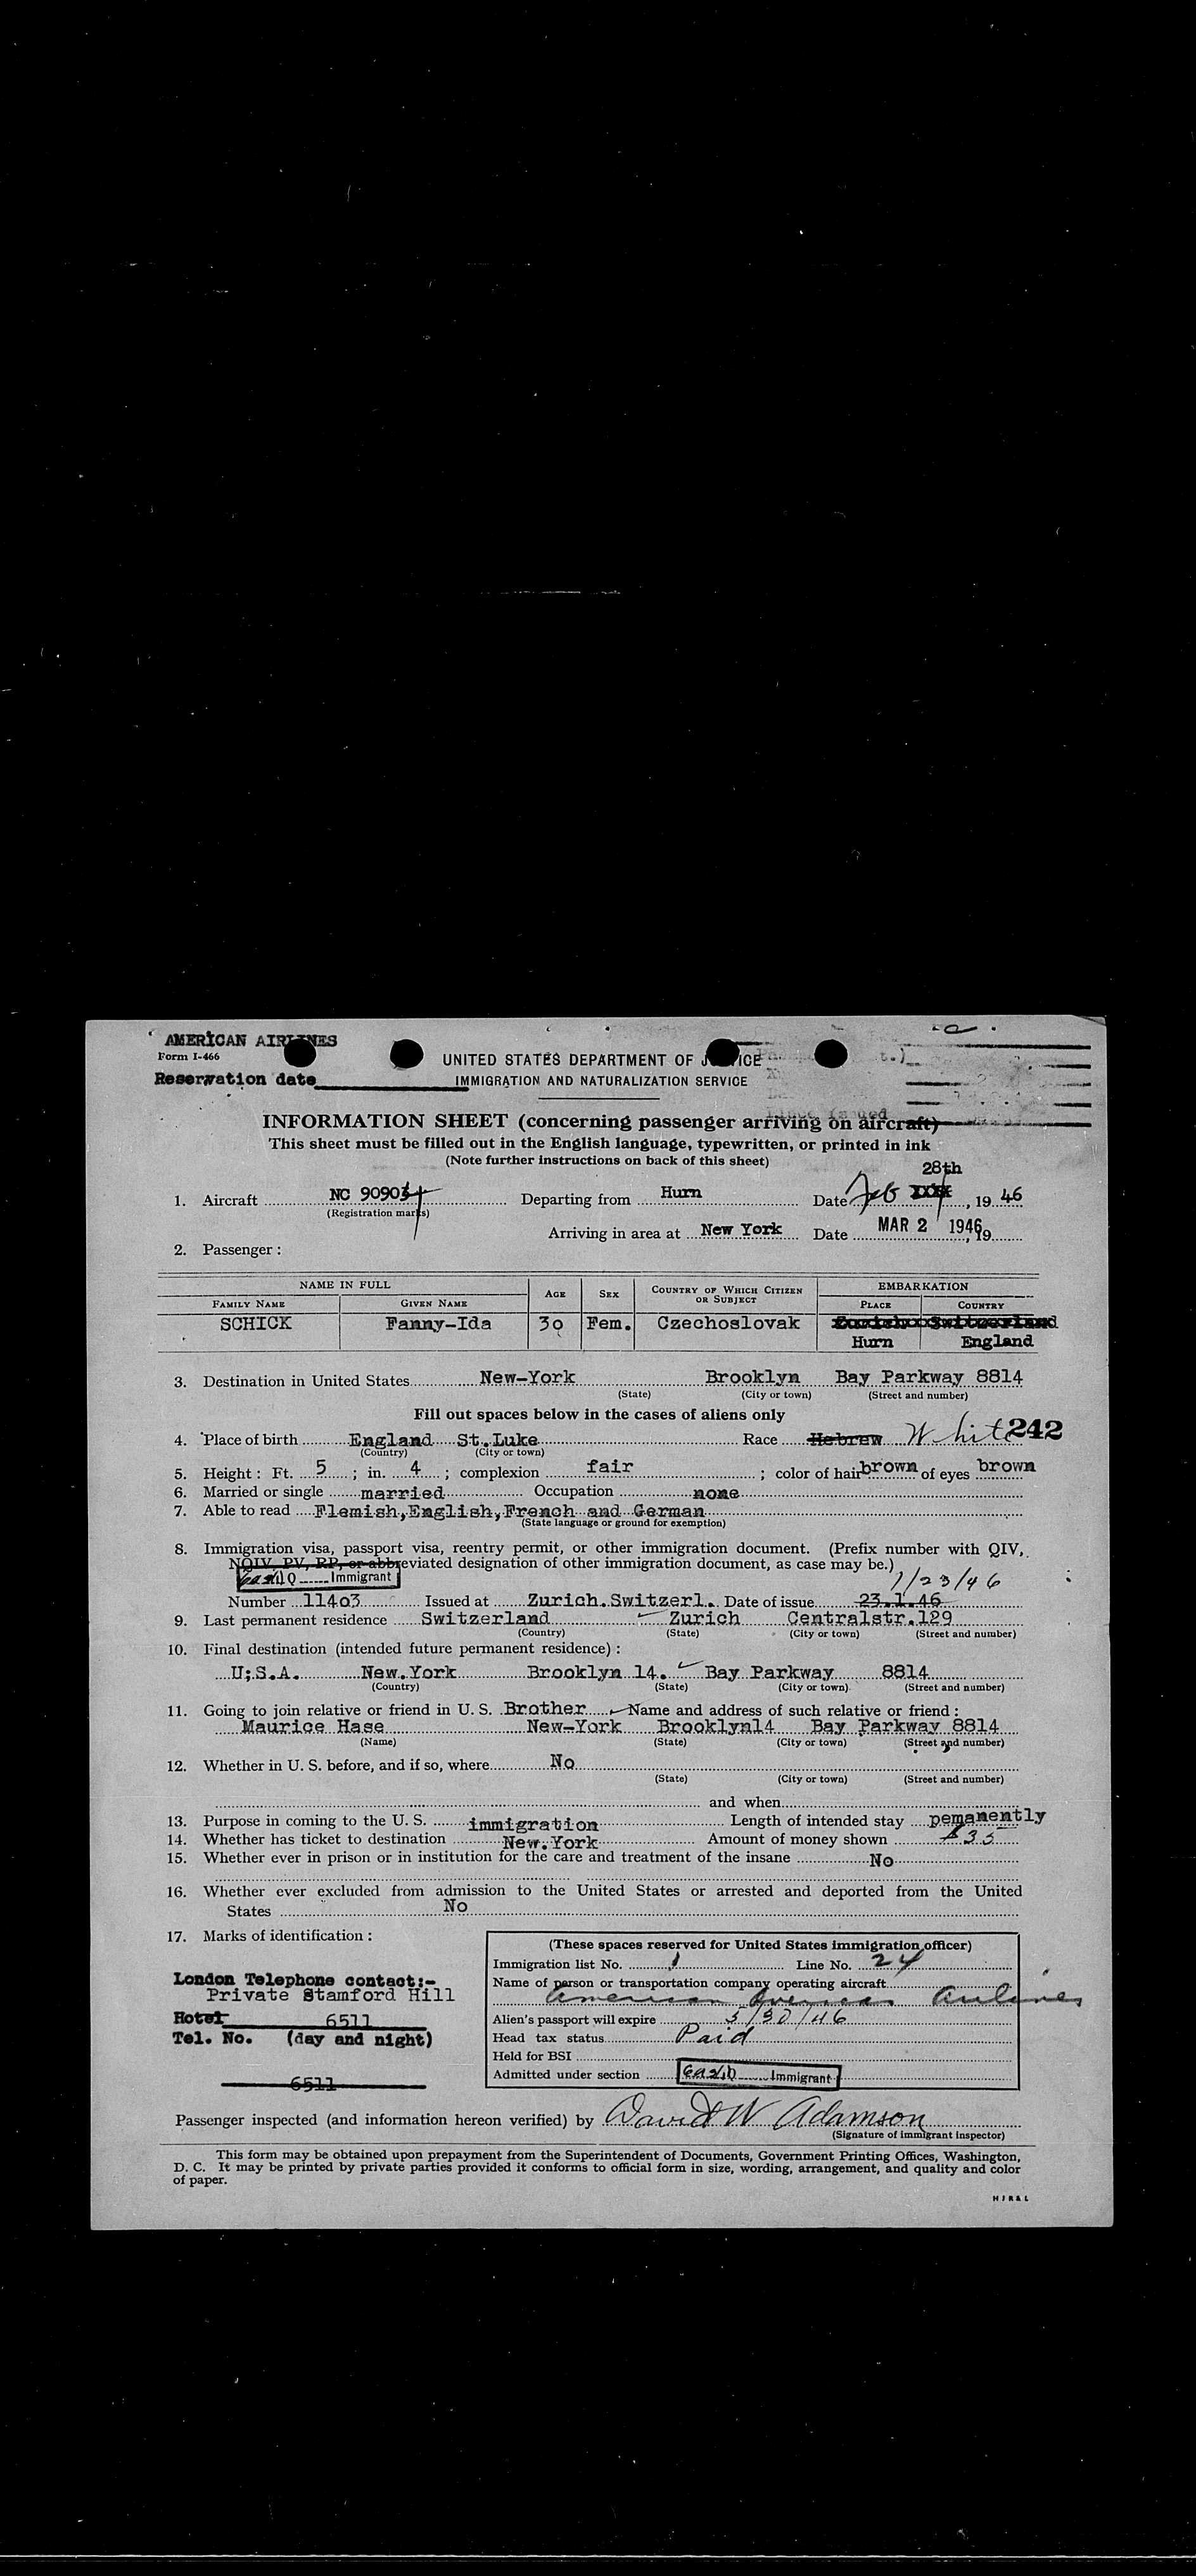 AMERICAN AIRLINES
Form I-466
UNITED STATES DEPARTMENT OF JUSTICE
Reservation date
IMMIGRATION AND NATURALIZATION SERVICE
INFORMATION SHEET (concerning passenger arriving on aircraft)
This sheet must be filled out in the English language, typewritten, or printed in ink
(Note further instructions on back of this sheet)
28th
1. Aircraft NC 90904 Departing from Hurn Date Feb , 19 46
(Registration marks)
Arriving in area at New York Date MAR 2 1946, 19
2. Passenger :
NAME IN FULL AGE SEX COUNTRY OF WHICH CITIZEN OR SUBJECT EMBARKATION
FAMILY NAME GIVEN NAME PLACE COUNTRY
SCHICK Fanny-Ida 30 Fem. Czechoslovak Zurich Switzerland
Hurn England
3. Destination in United States New-York Brooklyn Bay Parkway 8814
(State) (City or town) (Street and number)
Fill out spaces below in the cases of aliens only
4. Place of birth England St.Luke Race Hebrew White 242
(Country) (City or town)
5. Height : Ft. 5 ; in. 4 ; complexion fair ; color of hair brown of eyes brown
6. Married or single married Occupation none
7. Able to read Flemish,English,French and German
(State language or ground for exemption)
8. Immigration visa, passport visa, reentry permit, or other immigration document. (Prefix number with QIV,
NQIV, PV, RP, or abbreviated designation of other immigration document, as case may be.)
Q Immigrant 1/23/46
Number 11403 Issued at Zurich.Switzerl. Date of issue 23.1.46
9. Last permanent residence Switzerland Zurich Centralstr.129
(Country) (State) (City or town) (Street and number)
10. Final destination (intended future permanent residence) :
U;S.A. New.York Brooklyn 14. Bay Parkway 8814
(Country) (State) (City or town) (Street and number)
11. Going to join relative or friend in U. S. Brother Name and address of such relative or friend :
Maurice Hase New-York Brooklyn14 Bay Parkway 8814
(Name) (State) (City or town) (Street and number)
12. Whether in U. S. before, and if so, where No
(State) (City or town) (Street and number)
and when
13. Purpose in coming to the U. S. immigration Length of intended stay pemanently
14. Whether has ticket to destination New.York Amount of money shown $35
15. Whether ever in prison or in institution for the care and treatment of the insane No
16. Whether ever excluded from admission to the United States or arrested and deported from the United
States No
17. Marks of identification :
(These spaces reserved for United States immigration officer)
Immigration list No. 1 Line No. 24
London Telephone contact:-
Name of person or transportation company operating aircraft
Private Stamford Hill
American Overseas Airlines
Hotel 6511
Alien's passport will expire 5/30/46
Tel. No. (day and night)
Head tax status Paid
Held for BSI
6511
Admitted under section Immigrant
Passenger inspected (and information hereon verified) by David W Adamson
(Signature of immigrant inspector)
This form may be obtained upon prepayment from the Superintendent of Documents, Government Printing Offices, Washington,
D. C. It may be printed by private parties provided it conforms to official form in size, wording, arrangement, and quality and color
of paper.